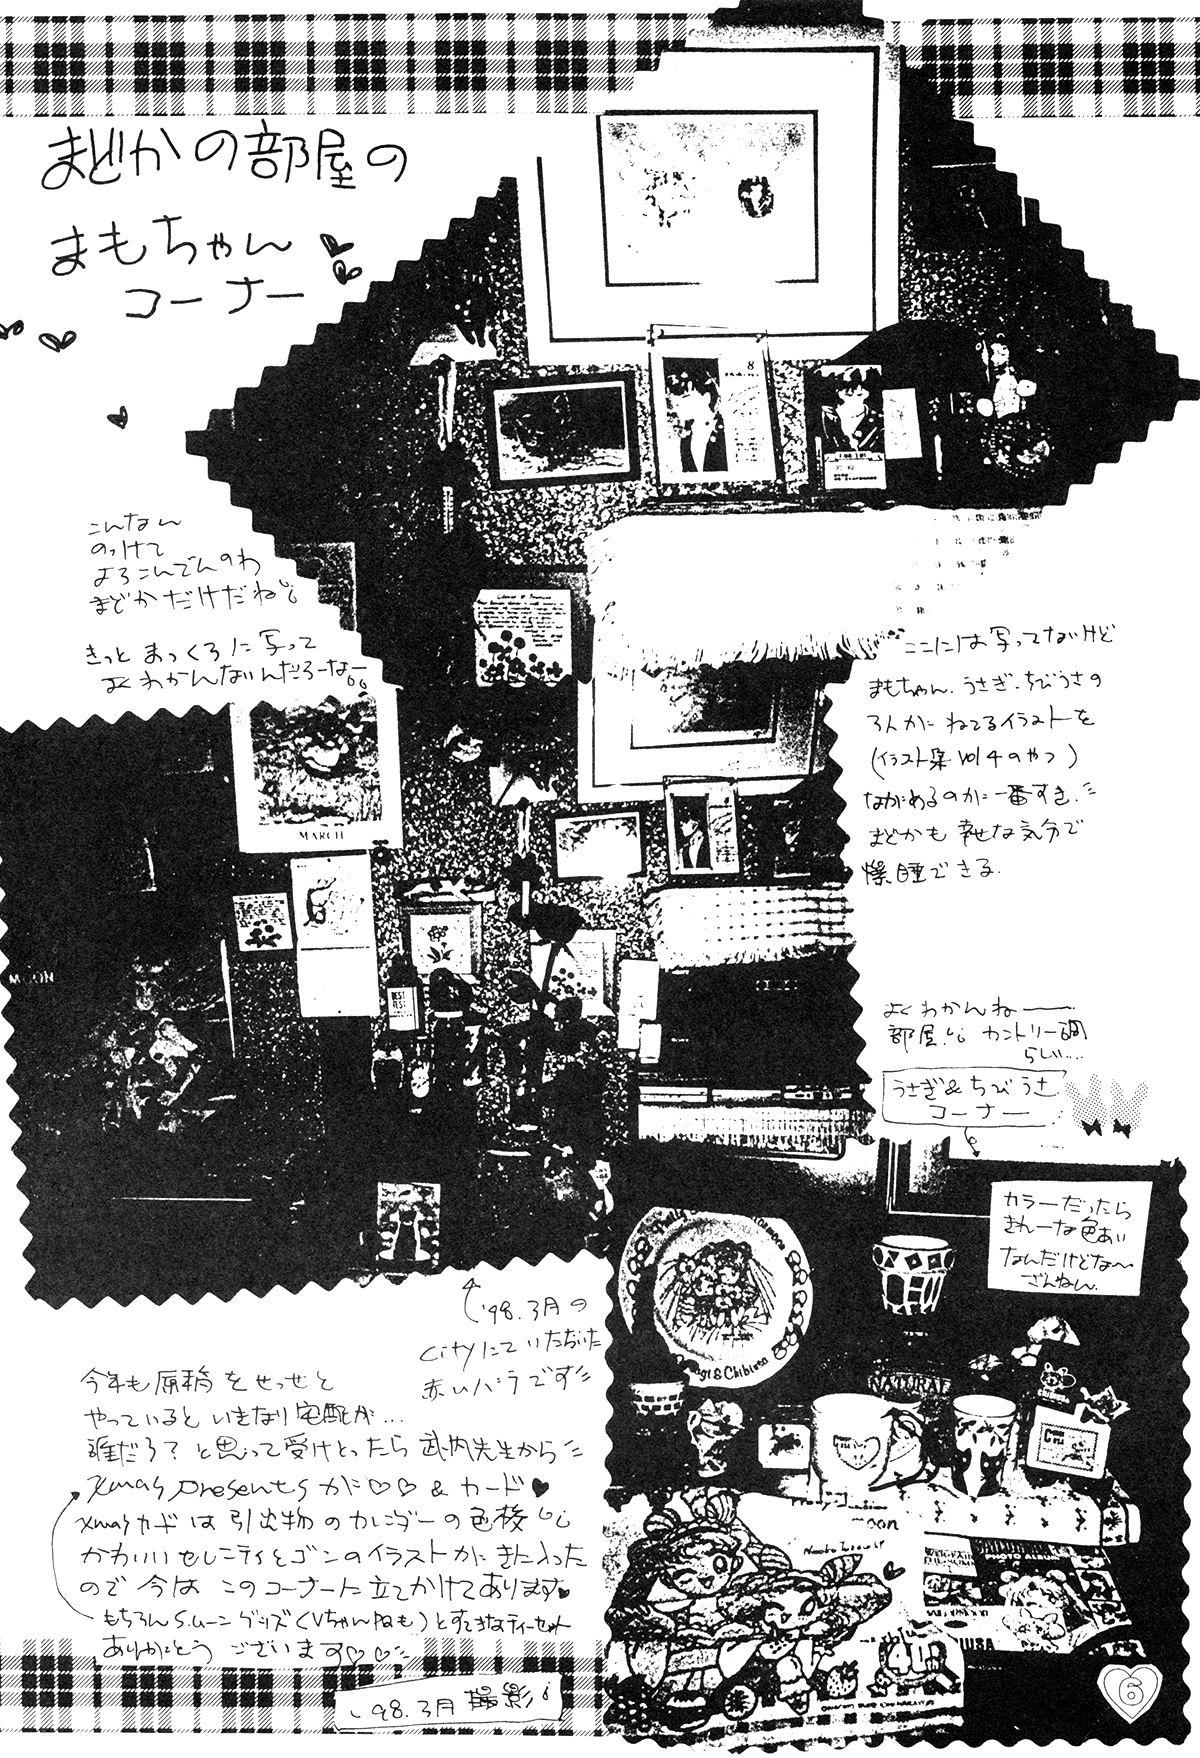 まどかの部屋の
まもちゃん
コーナー
こんなん
のっけて
よろこんでんのわ
まどかだけだね
きっと まっくろに 写って
よくわかんないんだろーなー
8
ここには写ってないけど
まもちゃん、うさぎ、ちびうさの
3人がねてるイラストを
(イラスト集 vol 4 のやつ)
ながめるのが一番すき
まどかも幸せな気分で
爆睡できる
MARCH
MOON
よくわかんねー
部屋 カントリー調
らしい....
うさぎ&ちびうさ
コーナー
カラーだったら
きれーな色あい
なんだけどな〜
ざんねん
& Chibiusa
NATURAL
'98.3月の
cityにていただいた
赤いバラです
今年も原稿をせっせと
やっていると いきなり宅配が...
誰だろ?と思って受けとったら 武内先生から
Xmas presents が♡♡ & カード♥
Xmasカードは引出物のカレンダーの色校
かわいいセレニティとゴンのイラストが気に入った
ので今は このコーナーに立てかけてあります♥
もちろんS.ムーングッズ(Vちゃんのも)とすてきなティーセット
ありがとう ございます♡♡
moon
Naoko Takeuchi
PHOTO ALBUM
'98.3月 撮影
6